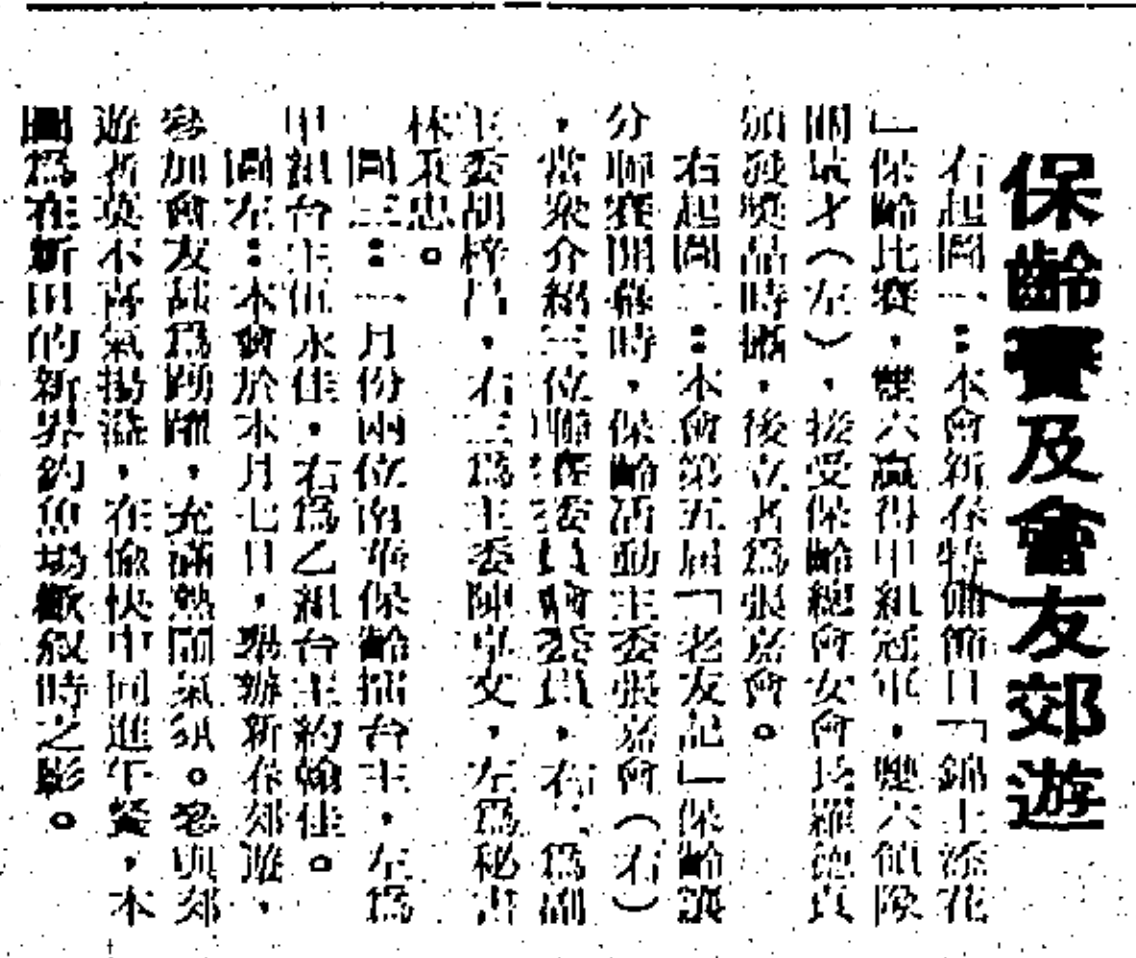 保齡賽及會友郊遊
右起圖一：本會新春特備節目「錦上添花
」保齡比賽，雙六贏得甲組冠軍，雙六領隊
關最才（左），接受保齡總會女會長羅德貞
頒發獎品時攝，後立者為張嘉會。
右起圖二：本會第五屆「老友記」保齡讓
分聯賽開幕時，保齡活動主委張嘉會（右）
，當眾介紹三位聯賽委員會委員，右一為副
主委胡梓昌，右三為主委陳卓文，左為秘書
林秉忠。
圖三：一月份兩位南華保齡擂台主，左為
甲組台主伍永佳，右為乙組台主約翰佳。
圖左：本會於本月七日，舉辦新春郊遊，
參加會友甚為踴躍，充滿熱鬧氣氛。參與郊
遊者莫不喜氣揚溢，在愉快中同進午餐，本
圖為在新田的新界釣魚場歡敍時之影。